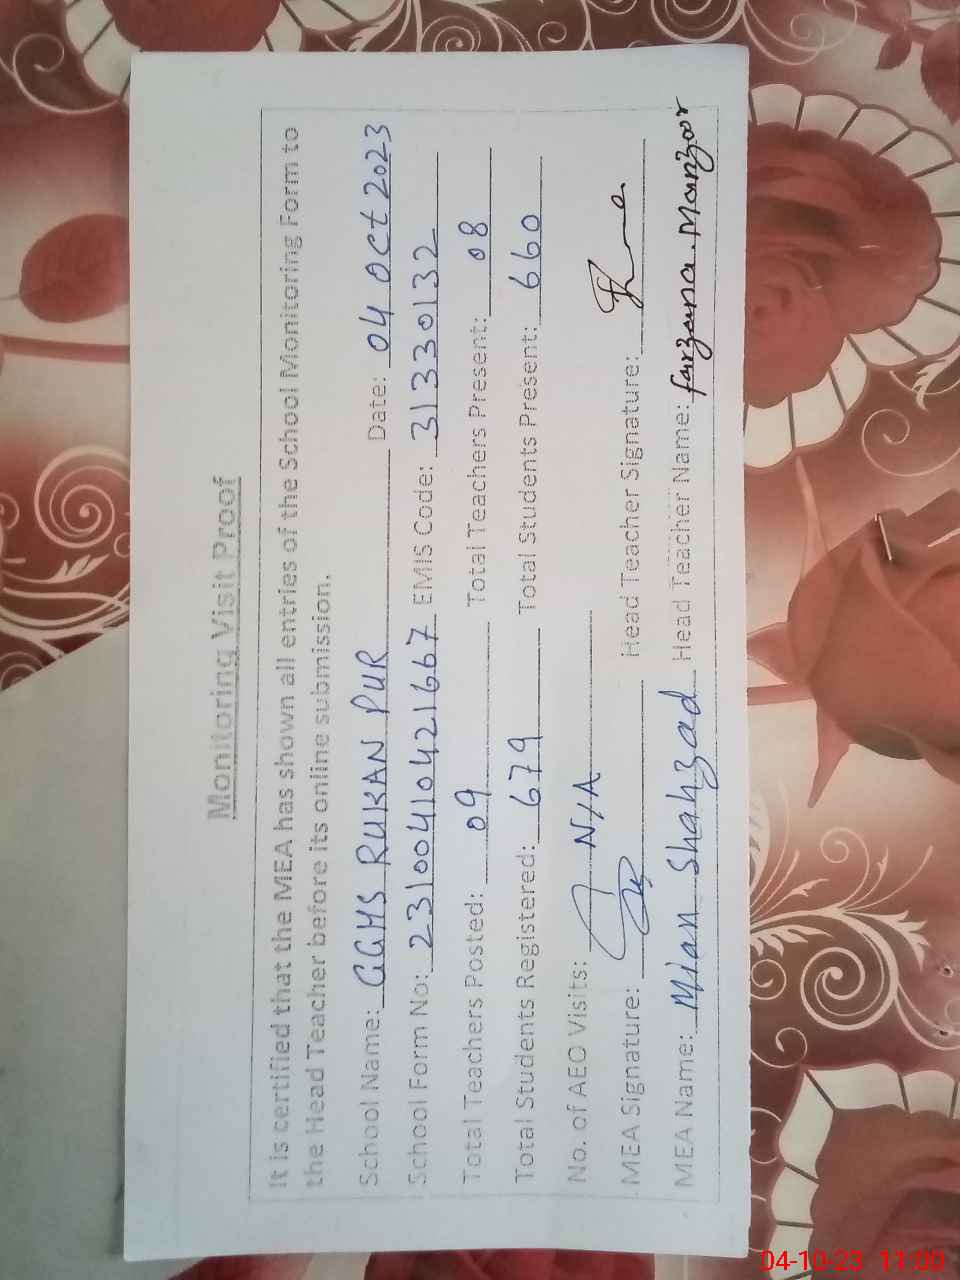 Monitoring Visit Proof
It is certified that the MEA has shown all entries of the School Monitoring Form to
the Head Teacher before its online submission.
School Name: GGHS RUKAN PUR Date: 04 Oct 2023
School Form No: 23100410421667 EMIS Code: 31330132
Total Teachers Posted: 09 Total Teachers Present: 08
Total Students Registered: 679 Total Students Present: 660
No. of AEO Visits: N/A
MEA Signature: Head Teacher Signature:
MEA Name: Mian Shahzad Head Teacher Name: farzana. Manzoor
04-10-23 11:00